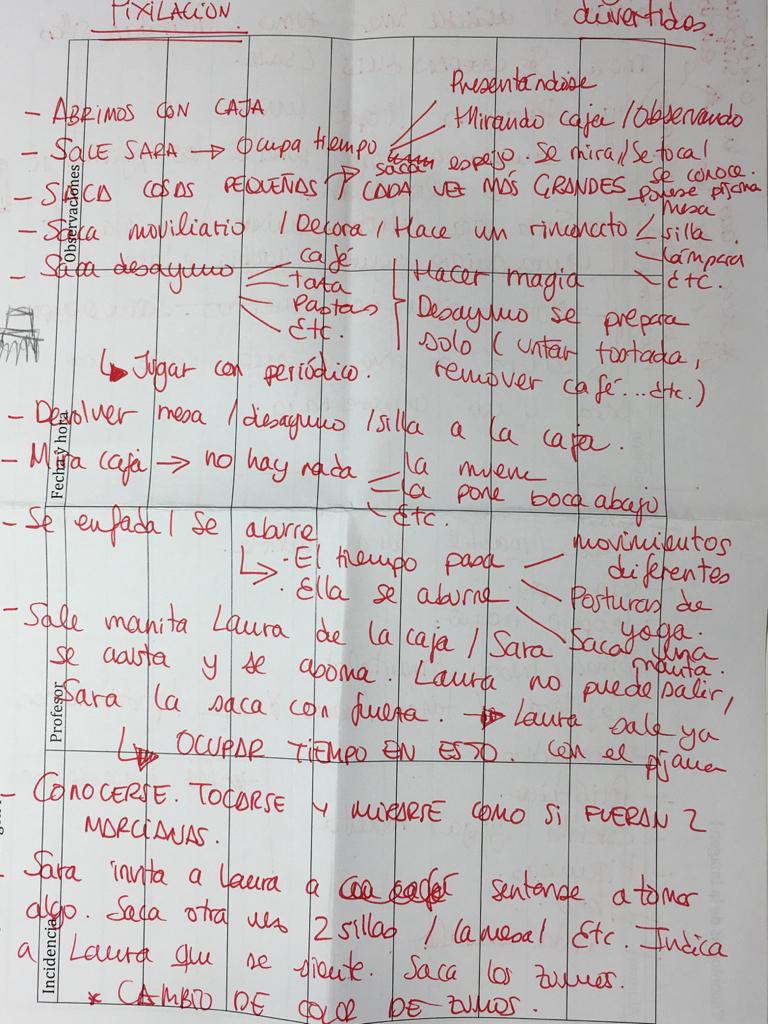 PIXILACIÓN
divertidos.
Presentándose
- ABRIMOS CON CAJA
Mirando caja / Observando
- SALE SARA → Ocupa tiempo
espejo. Se mira / Se toca /
se conoce.
- SACA COSAS PEQUEÑAS → CADA VEZ MÁS GRANDES
Ponese pijama
- Saca moviliario / Decora / Hace un rinconcito
mesa
silla
lámpara
Etc.
- Saca desayuno
café
tata
Pastas
Etc.
Hacer magia
Desayuno se prepara
solo (untar tostada,
remover café... etc.)
↳ Jugar con periódico.
- Devolver mesa / desayuno / silla a la caja.
- Mira caja → no hay nada
la mueve
la pone boca abajo
Etc.
- Se enfada / Se aburre
↳ · El tiempo pasa
· Ella se aburre
movimientos
diferentes
Posturas de
yoga.
Saca una
manta.
- Sale manita Laura de la caja / Sara
se asusta y se asoma. Laura no puede salir,
Sara la saca con fuerza. → Laura sale ya
con el pijama
↳ OCUPAR TIEMPO EN ESTO.
- CONOCERSE. TOCARSE Y MIRARSE COMO SI FUERAN 2
MARCIANAS.
- Sara invita a Laura a sentarse a tomar
algo. Saca otra vez 2 sillas / la mesa / Etc. Indica
a Laura que se siente. Saca los zumos.
* CAMBIO DE COLOR DE ZUMOS.
Observaciones
Fecha y hora
Profesor
Incidencia